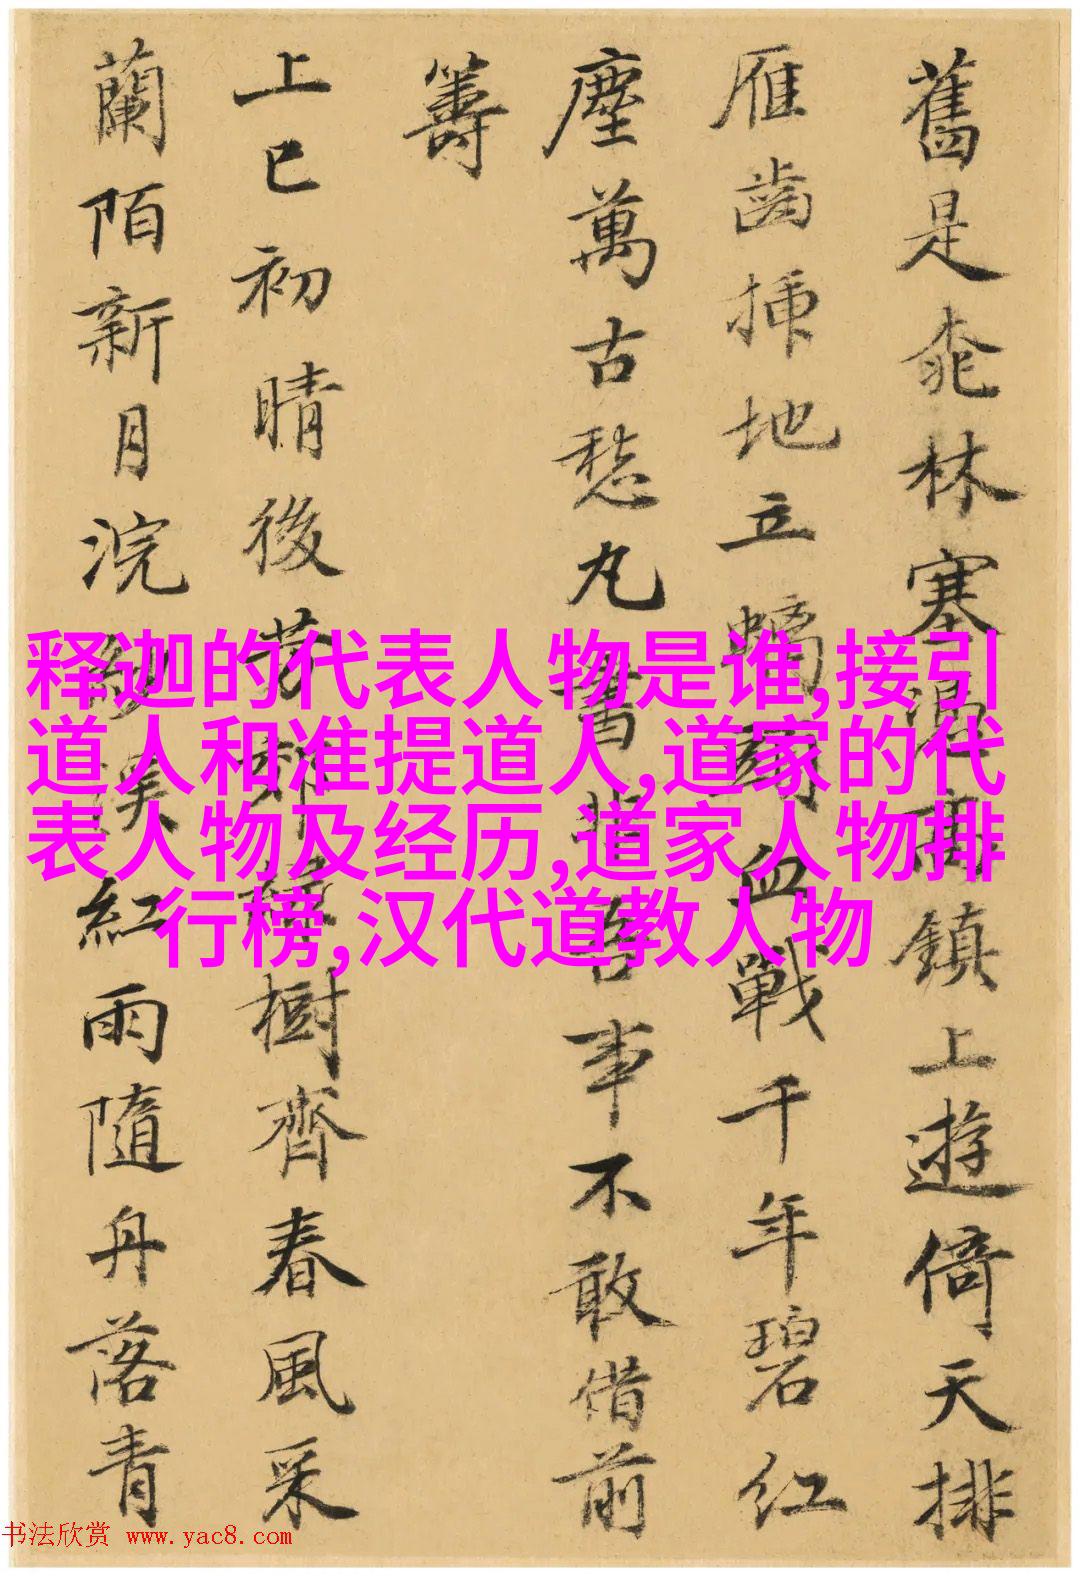 舊是桃林塞鎮上遊倚天排
雁齒插地立血戰千年碧紅
塵萬古愁丸書非吾事不敢借前
籌
上巳初晴後芳郊樹齊春風采
蘭陌新月浣紗溪紅雨隨舟落青
释迦的代表人物是谁,接引
道人和准提道人,道家的代
表人物及经历,道家人物排
行榜,汉代道教人物
书法欣赏 www.yac8.com